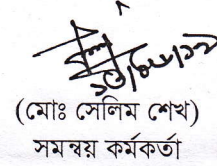 (মোঃ সেলিম শেখ)
সমন্বয় কর্মকর্তা